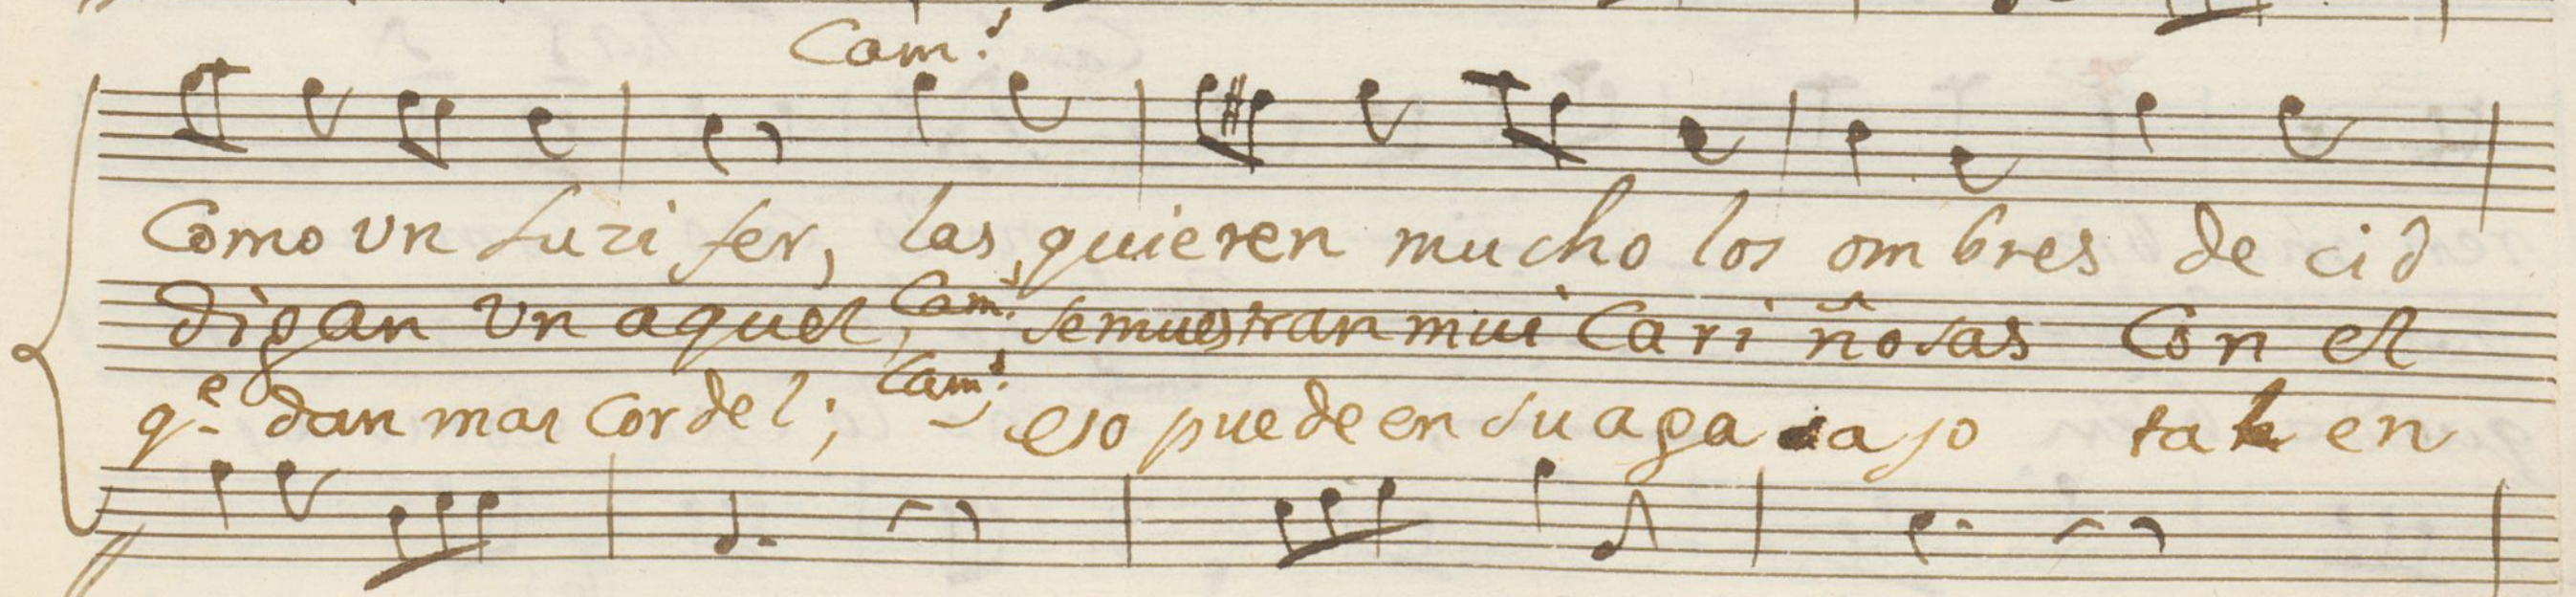 Cam.ˢ
Como un Luzifer, las quieren mucho los ombres de cid
digan un aquel, Cam.ˢ se muestran mui Cariñosas Con el
q.ᵉ dan mas Cordel; Cam.ˢ eso puede en su aga sajo tal en